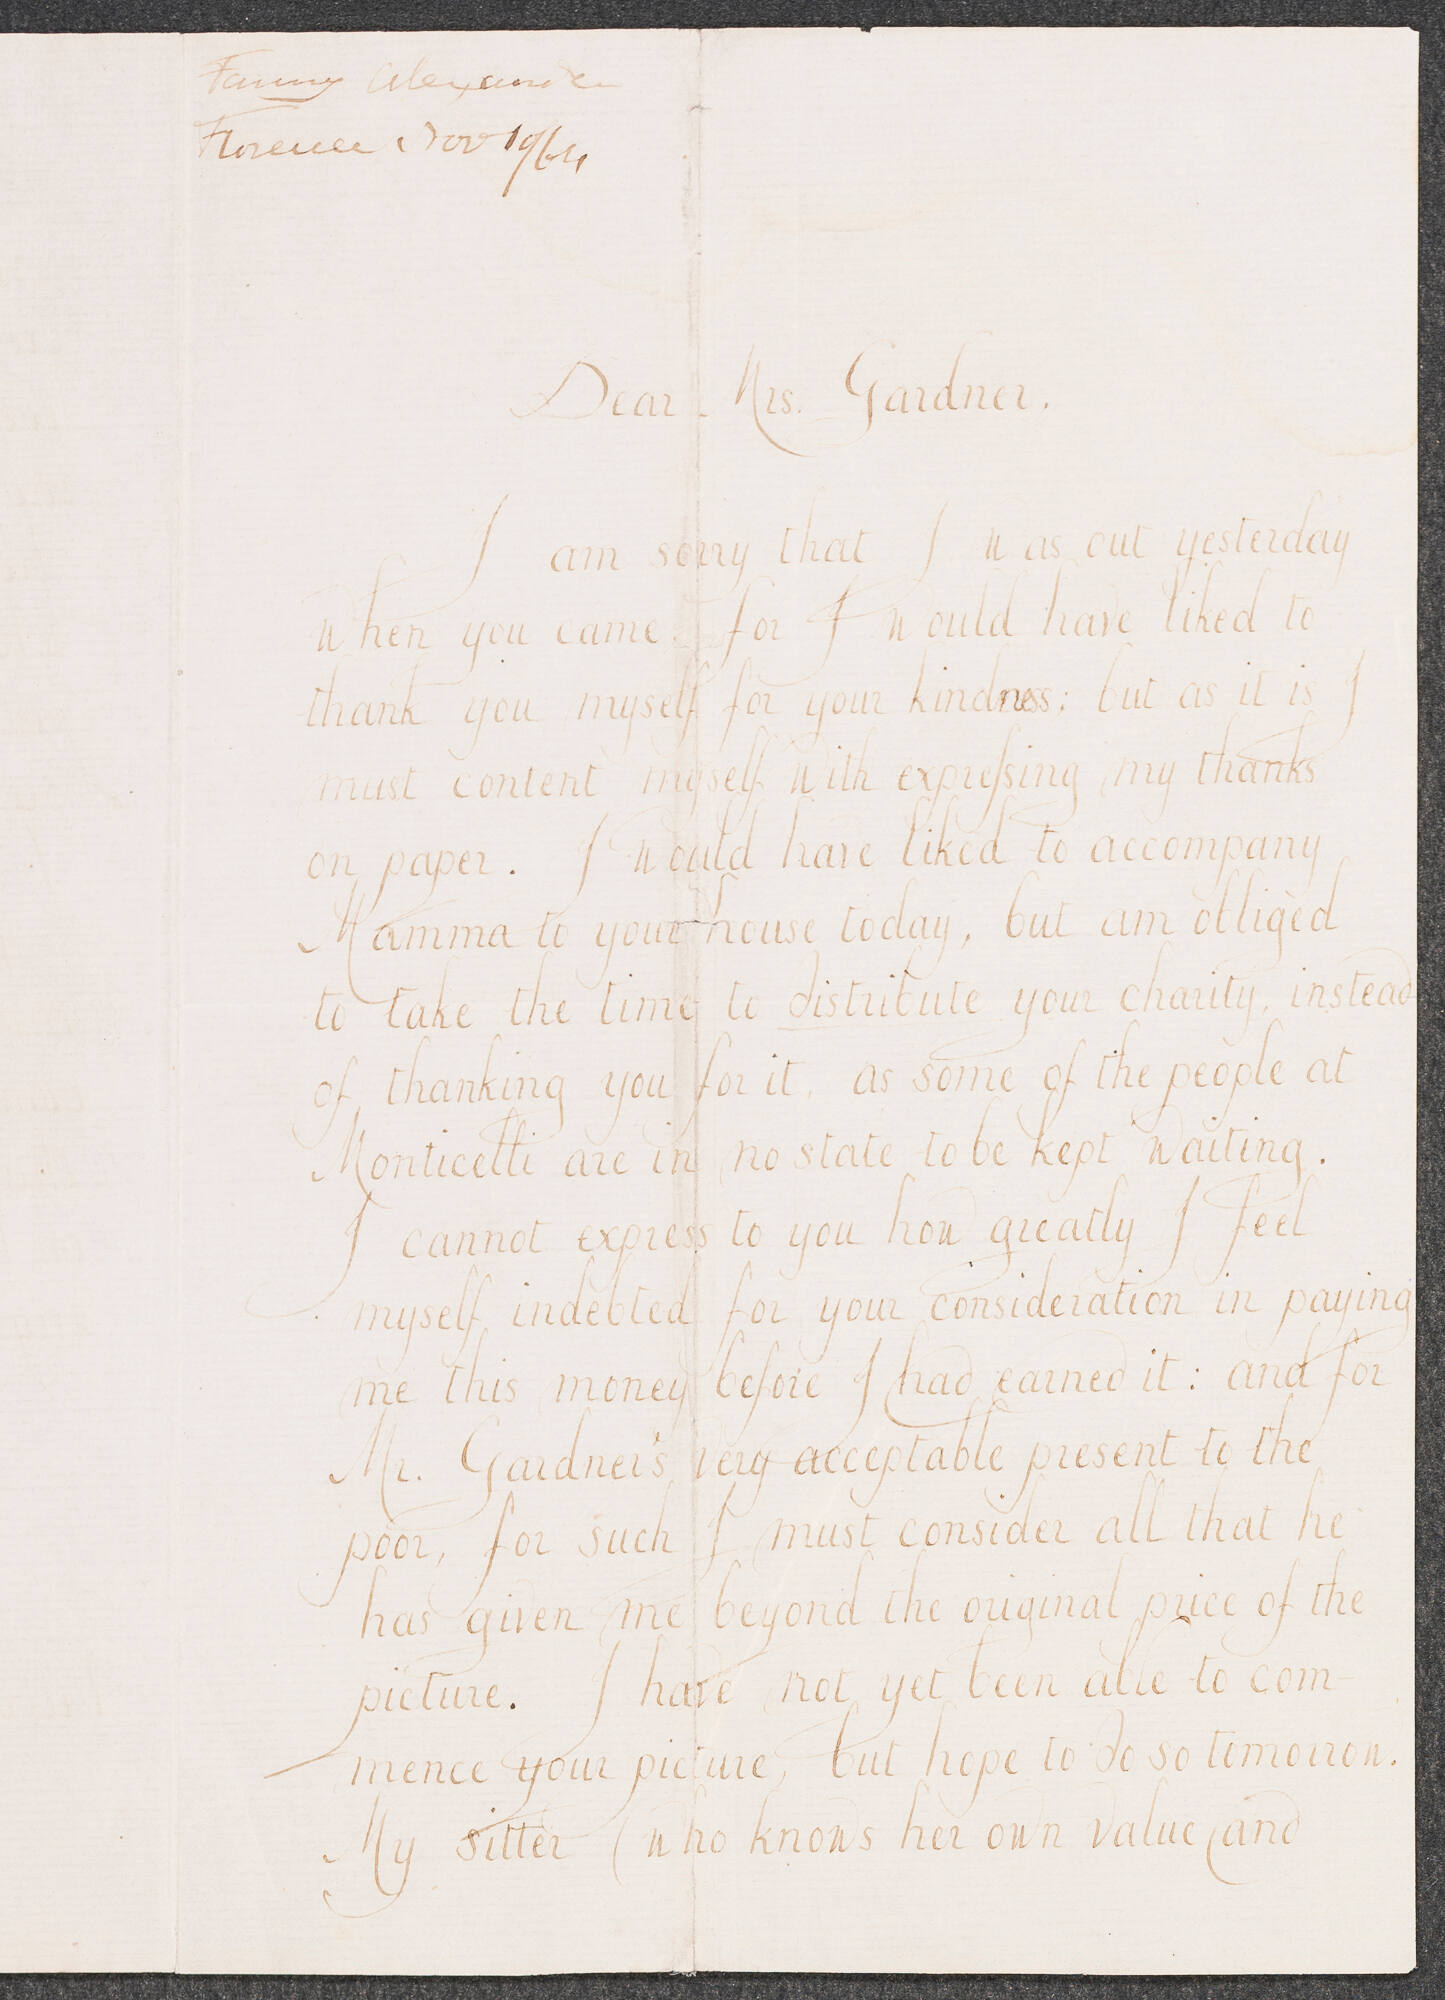 Fanny Alexander
Florence Nov 19/64
Dear Mrs. Gardner.
I am sorry that I was out yesterday
when you came, for I would have liked to
thank you myself for your kindness: but as it is I
must content myself with expressing my thanks
on paper. I would have liked to accompany
Mamma to your house today, but am obliged
to take the time to distribute your charity, instead
of thanking you for it, as some of the people at
Monticelli are in no state to be kept waiting.
I cannot express to you how greatly I feel
myself indebted for your consideration in paying
me this money before I had earned it: and for
Mr. Gardner's very acceptable present to the
poor, for such I must consider all that he
has given me beyond the original price of the
picture. I have not yet been able to com-
mence your picture, but hope to do so tomorrow.
My sitter (who knows her own value, and